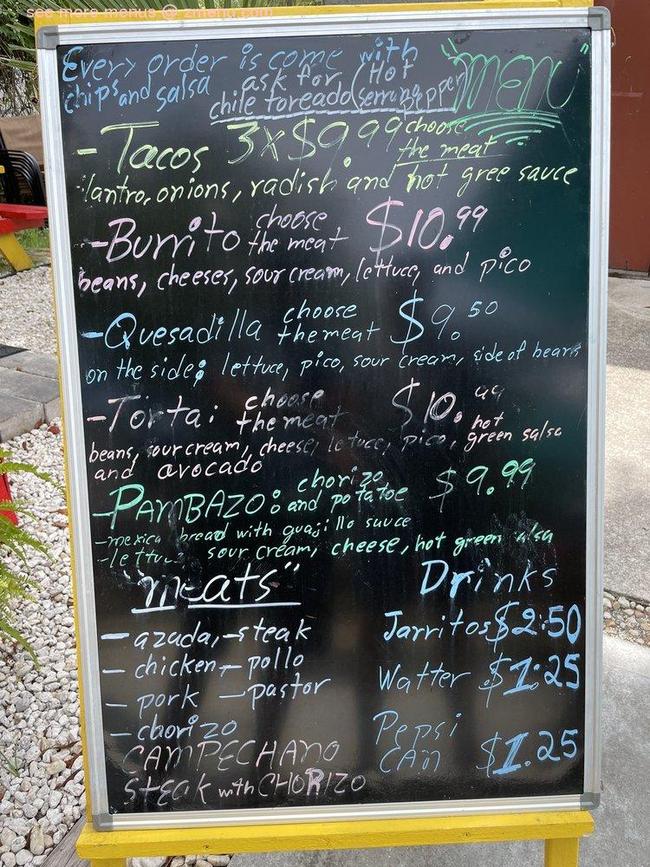 see more menus @ zmenu.com
Every order is come with
chips and salsa ask for (Hot
chile toreado (serrano pepper)
"MENU"
- Tacos 3x$9.99 choose
the meat
ilantro, onions, radish and hot gree sauce
- Burrito choose
the meat $10.99
beans, cheeses, sour cream, lettuce, and pico
- Quesadilla choose
the meat $9.50
on the side; lettuce, pico, sour cream, side of beans
- Torta: choose
the meat $10.99
beans, sour cream, cheese, lettuce, pico, hot green salsa
and avocado
- PAMBAZO: chorizo
and potatoe $9.99
- mexica bread with guajillo sauce
- lettu sour cream, cheese, hot green alsa
"meats"
- azada, - steak
- chicken - pollo
- pork - pastor
- chorizo
CAMPECHANO
STEAK with CHORIZO
Drinks
Jarritos $2.50
Watter $1.25
Pepsi
CAN $1.25